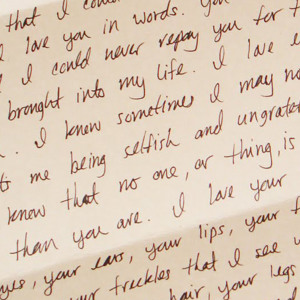 that I could
I love you in words. You
I could never repay you for t
brought into my life. I love e
. I know sometimes I may no
me being selfish and ungrate
know that no one, or thing, is
than you are. I love your
yes, your ears, your lips, your f
your freckles that I see w
hair, your legs